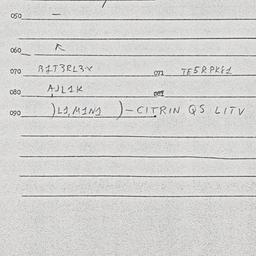 050 —
060
070 B1T3RL3Y 071 TE5RPKE1
080 AJL1K 081
090 )L1,M1N1 )-CITRIN QS LITV